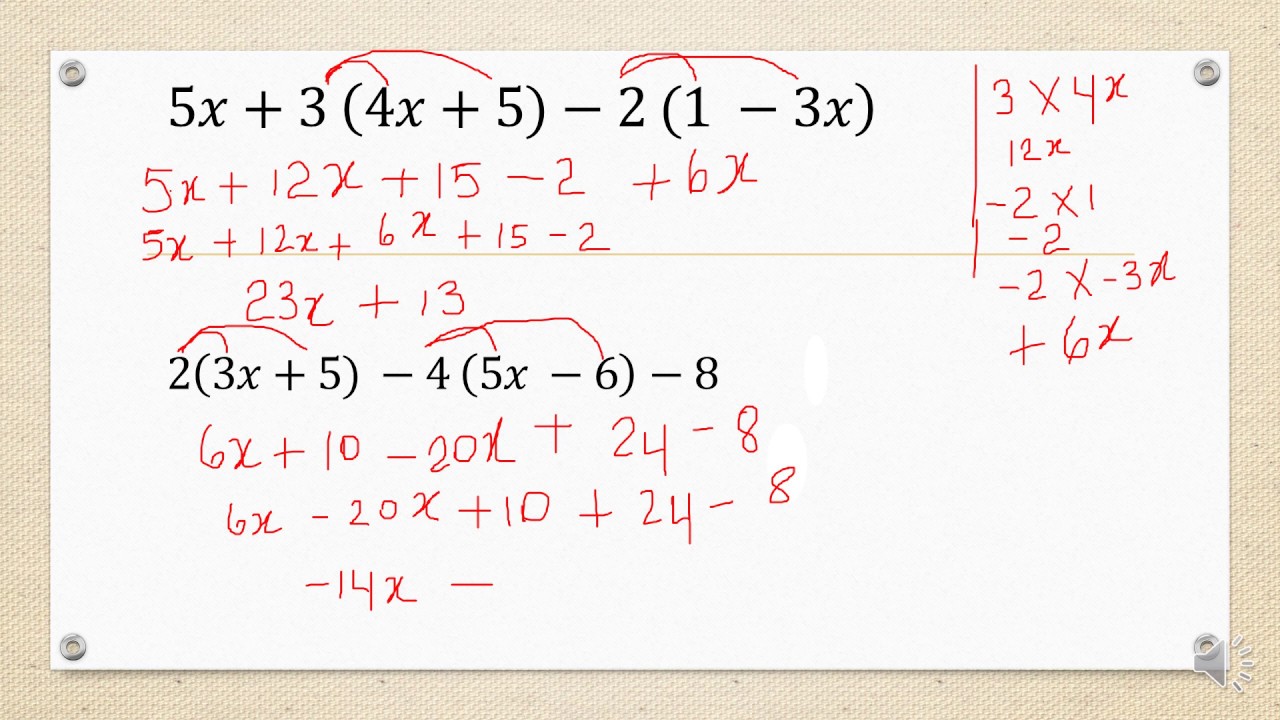 5x + 3 (4x + 5) − 2 (1 − 3x)
5x + 12x + 15 − 2 + 6x
5x + 12x + 6x + 15 − 2
23x + 13
2(3x + 5) − 4 (5x − 6) − 8
6x + 10 − 20x + 24 − 8
6x − 20x + 10 + 24 − 8
−14x −
3 × 4x
12x
−2 × 1
−2
−2 × −3x
+ 6x